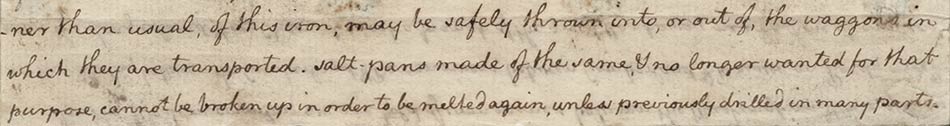 -ner than usual, of this iron, may be safely thrown into, or out of, the waggons in
which they are transported. salt-pans made of the same, & no longer wanted for that
purpose, cannot be broken up in order to be melted again, unless previously drilled in many parts.